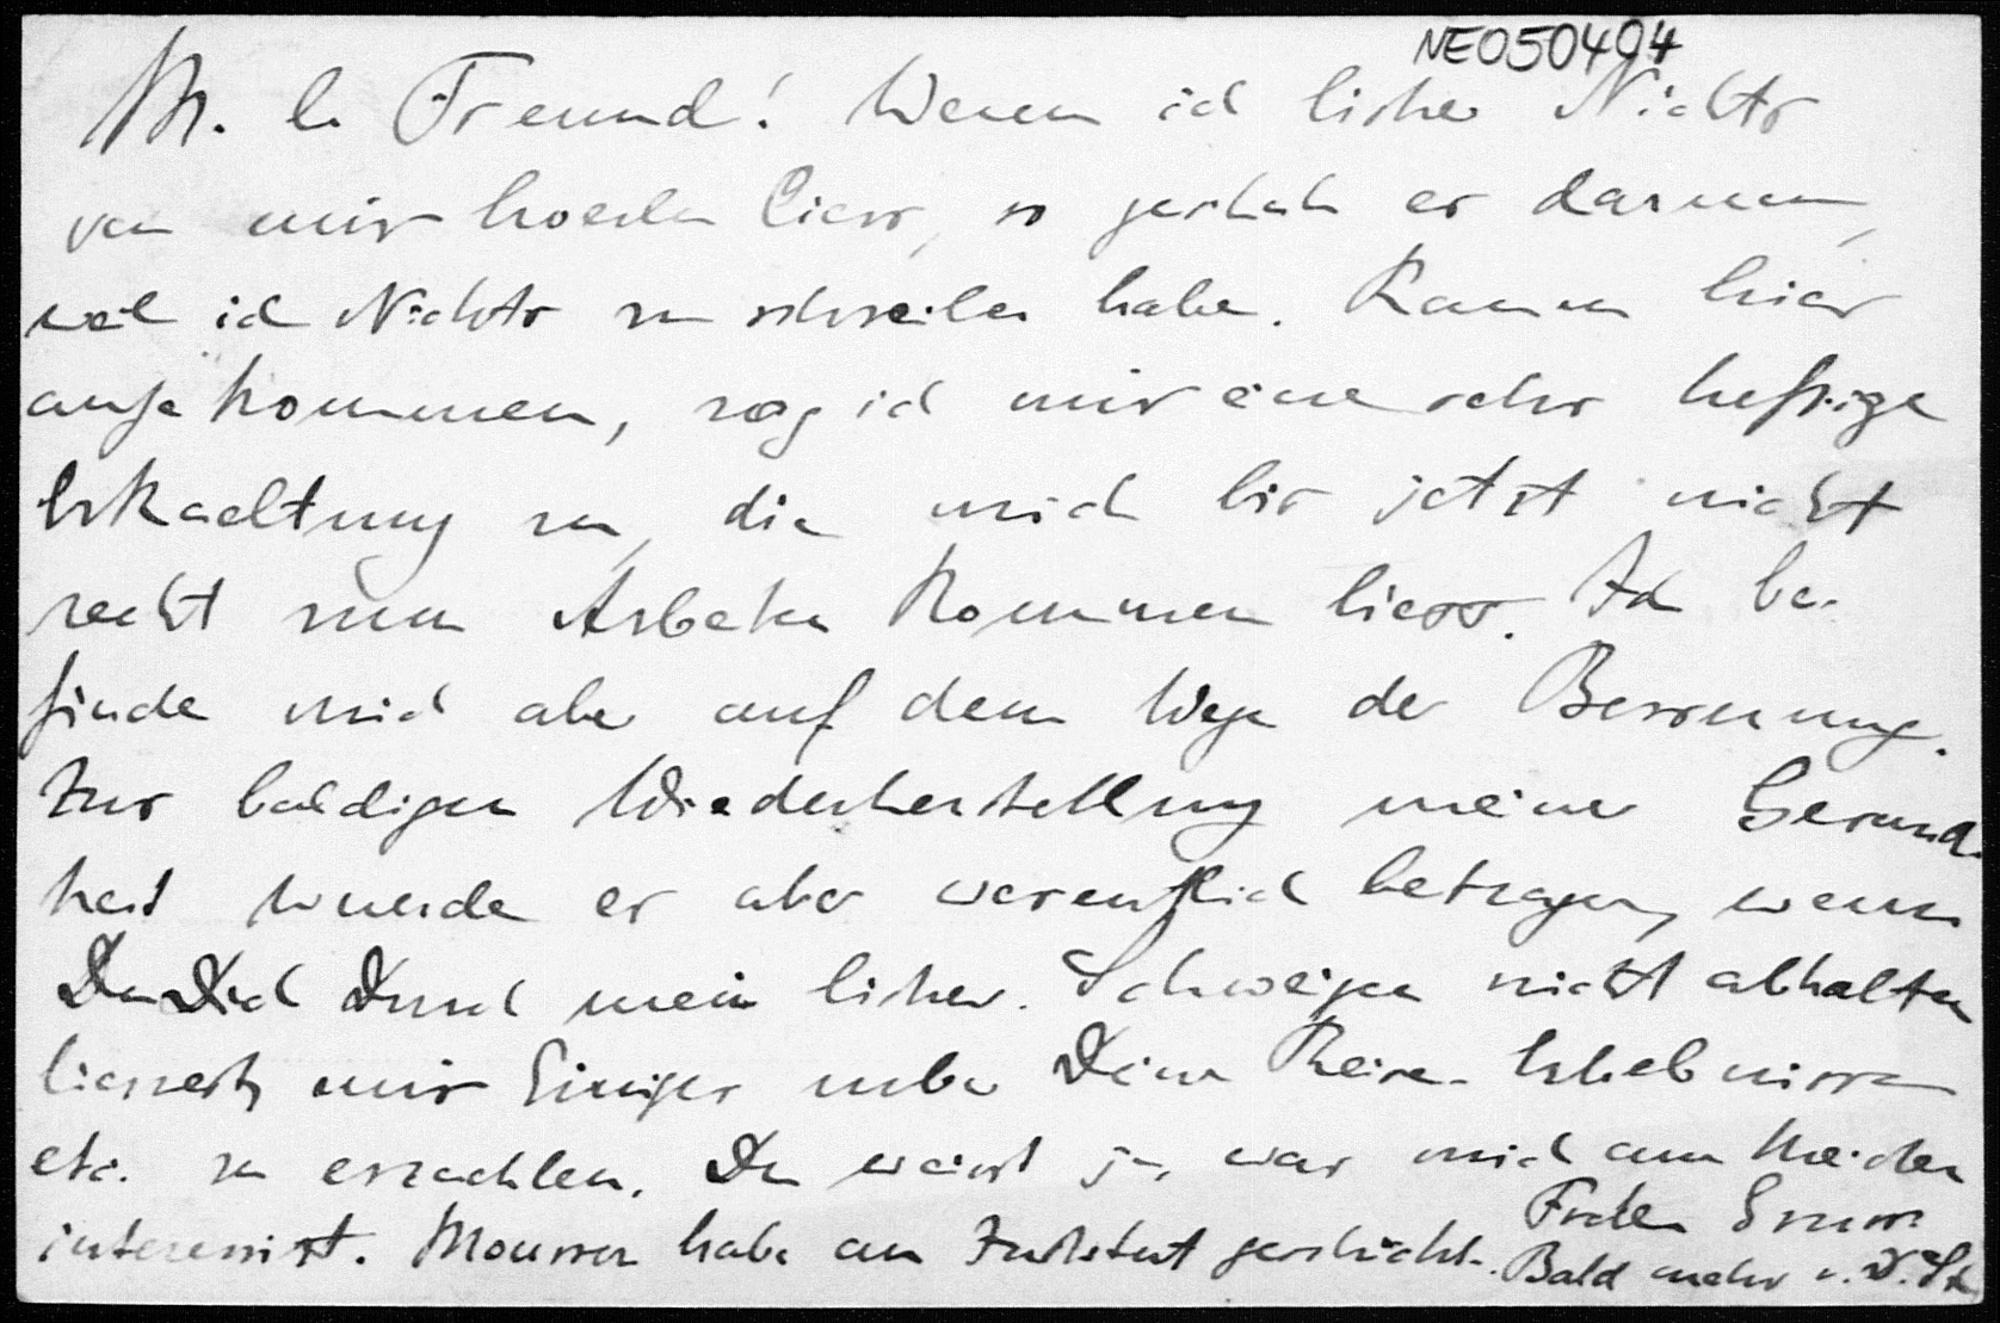 NE050494
M. l. Freund! Wenn ich bisher Nichts
von mir hoeren liess, so geschah es darum,
weil ich Nichts zu schreiben habe. Kaum hier
angekommen, zog ich mir eine sehr heftige
Erkaeltung zu, die mich bis jetzt nicht
recht zum Arbeiten kommen liess. Ich be-
finde mich aber auf dem Wege der Besserung.
Zur baldigen Wiederherstellung meiner Gesund-
heit wuerde es aber wesentlich betragen, wenn
Du Dich durch mein bisher. Schweigen nicht abhalten
liessest, mir Einiges ueber Deine Reise-Erlebnisse
etc. zu erzaehlen. Du weisst ja, was mich am Meisten
interessirt. Moussen habe an Institut geschickt.
Frohen Gruss
Bald mehr v. D. St